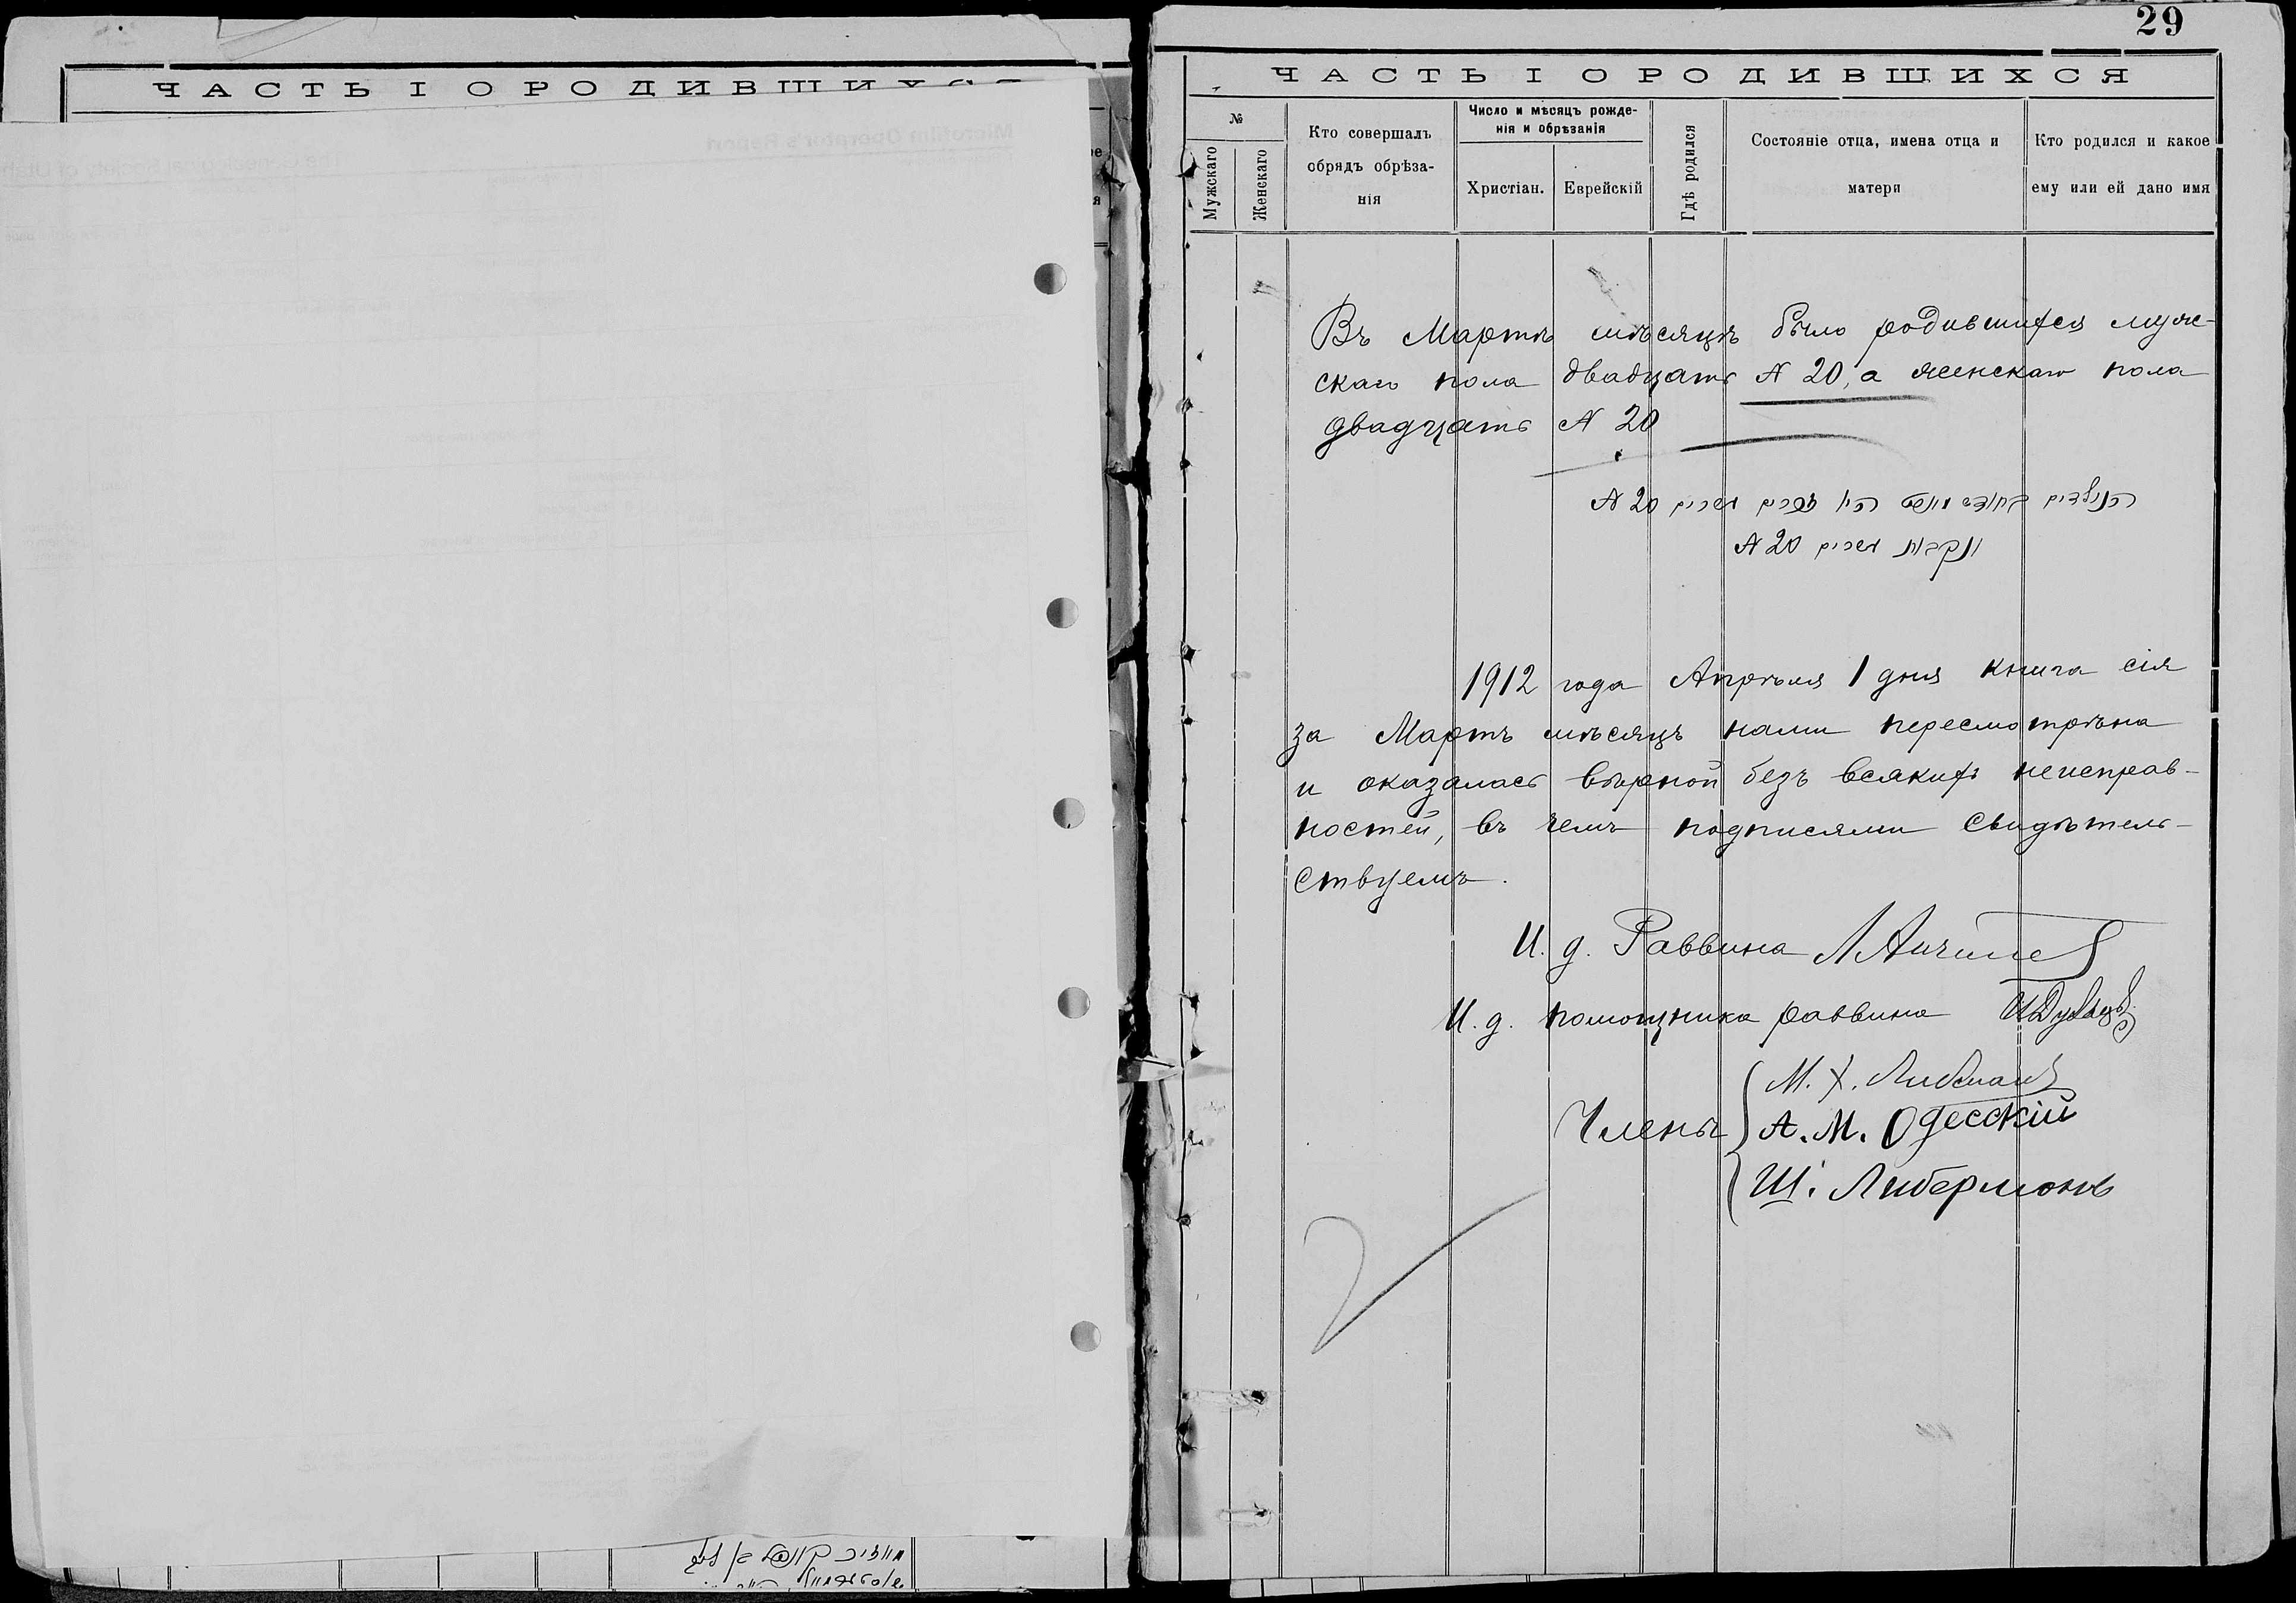 ЧАСТЬ I О РОДИВШИХСЯ
29
ЧАСТЬ I О РОДИВШИХСЯ
№
Мужскаго
Женскаго
Кто совершалъ
обрядъ обрѣза-
нія
Число и мѣсяцъ рожде-
нія и обрѣзанія
Христіан.
Еврейскій
Гдѣ родился
Состояніе отца, имена отца и
матери
Кто родился и какое
ему или ей дано имя
Въ Мартѣ мѣсяцѣ было родившихся муж-
скаго пола двадцать № 20, а женскаго пола
двадцать № 20
הנולדים בחודש מארט היו זכרים עשרים № 20
נקבות עשרים № 20
1912 года Апрѣля 1 дня книга сія
за Мартъ мѣсяцъ нами пересмотрѣна
и оказалась вѣрной безъ всякихъ неисправ-
ностей, въ чемъ подписями свидѣтель-
ствуемъ.
И. д. Раввина
И. д. помощника раввина
М. Х. Либманъ
Члены А. М. Одесскій
Ш. Либермонъ